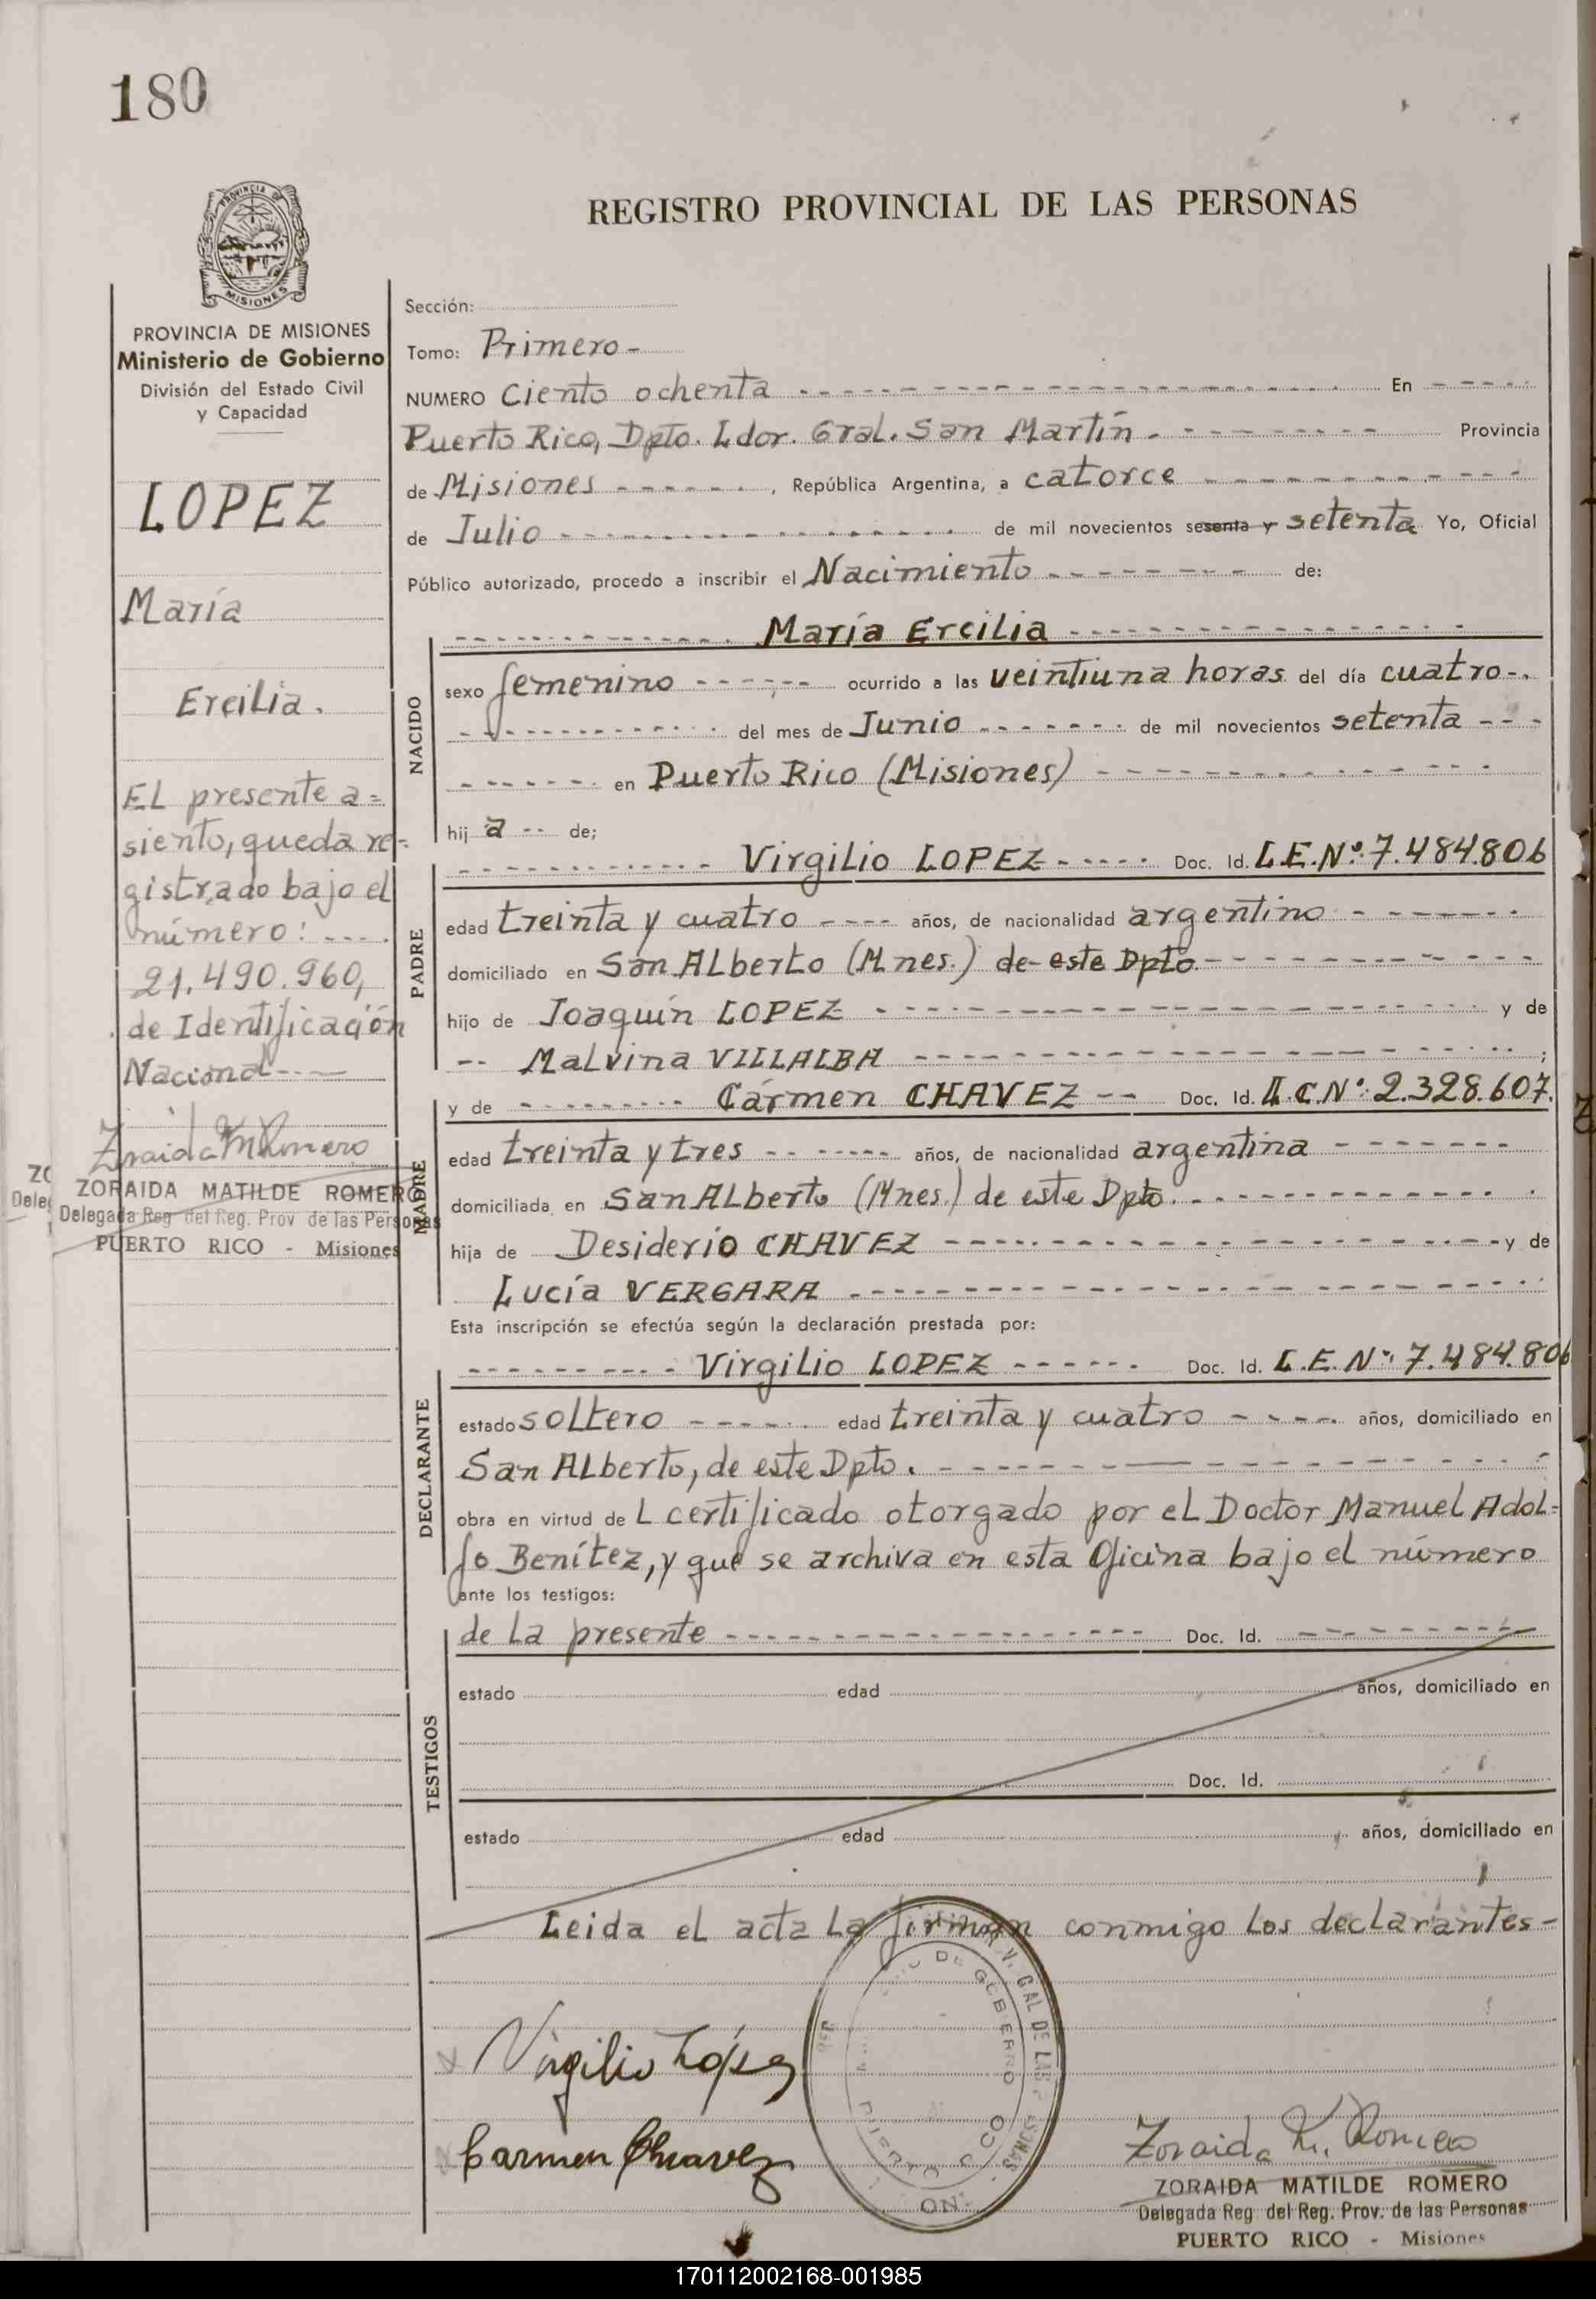 180
PROVINCIA DE
MISIONES
REGISTRO PROVINCIAL DE LAS PERSONAS
PROVINCIA DE MISIONES
Ministerio de Gobierno
División del Estado Civil
y Capacidad
LOPEZ
María
Ercilia.
EL presente a=
siento, queda re=
gistrado bajo el
número: ----
21.490.960,
de Identificación
Nacional----
Zoraida M Romero
ZORAIDA MATILDE ROMERO
Delegada Reg del Reg. Prov de las Personas
PUERTO RICO - Misiones
Sección:
Tomo: Primero-
NUMERO Ciento ochenta ---- En ----
Puerto Rico, Dpto. Ldor. Gral. San Martín. ---- Provincia
de Misiones ----, República Argentina, a catorce ----
de Julio ---- de mil novecientos sesenta y setenta Yo, Oficial
Público autorizado, procedo a inscribir el Nacimiento ---- de:
NACIDO
---- María Ercilia ----
sexo femenino ---- ocurrido a las veintiuna horas del día cuatro-.
---- del mes de Junio ---- de mil novecientos setenta ---
---- en Puerto Rico (Misiones) ----
hij a -- de;
PADRE
---- Virgilio LOPEZ ---- Doc. Id. L.E.Nº.7.484.806
edad treinta y cuatro ---- años, de nacionalidad argentino ----
domiciliado en San ALberto (Mnes.) de este Dpto. ----
hijo de Joaquín LOPEZ ---- y de
-- Malvina VILLALBA ---- ;
MADRE
y de ---- Cármen CHAVEZ -- Doc. Id. L.C.Nº:2.328.607.
edad treinta y tres ---- años, de nacionalidad argentina ----
domiciliada en San ALberto (Mnes.) de este Dpto. ----
hija de Desiderio CHAVEZ ---- y de
Lucía VERGARA ----
Esta inscripción se efectúa según la declaración prestada por:
DECLARANTE
---- Virgilio LOPEZ ---- Doc. Id. L.E.Nº: 7.484.806
estado soltero ---- edad treinta y cuatro ---- años, domiciliado en
San ALberto, de este Dpto. ----
obra en virtud de L certificado otorgado por el Doctor Manuel Adol=
fo Benítez, y que se archiva en esta Oficina bajo el número
ante los testigos:
TESTIGOS
de la presente ---- Doc. Id. ----
estado edad años, domiciliado en
Doc. Id.
estado edad años, domiciliado en
Leida el acta la firman conmigo los declarantes-
Virgilio López
Carmen Chavez
DE GOBIERNO
PUERTO RICO
Zoraida M. Romero
ZORAIDA MATILDE ROMERO
Delegada Reg. del Reg. Prov. de las Personas
PUERTO RICO - Misiones
170112002168-001985